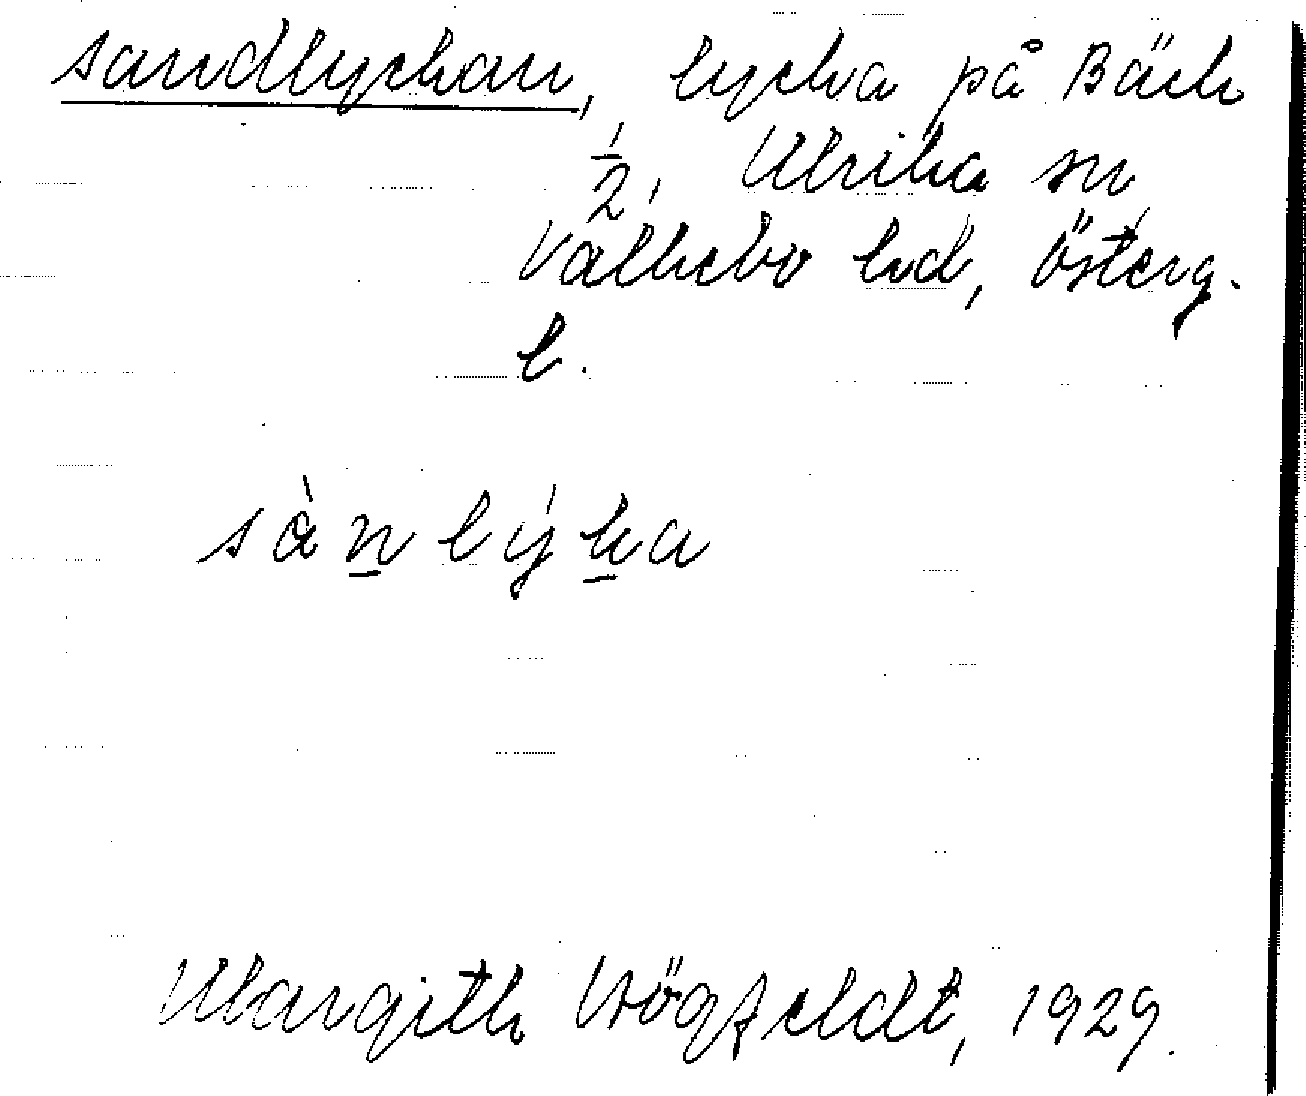 sandlyckan, lycka på Bäck
1/2, Ulrika sn,
Valkebo hd, Österg.
l.
sànlýka
Margith Högfeldt, 1929.